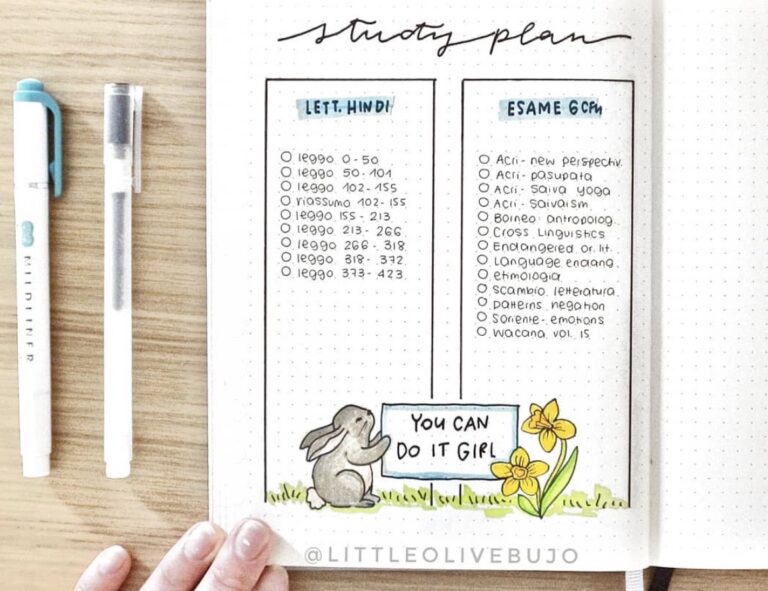 study plan
LETT. HINDI
leggo 0-50
leggo 50-101
leggo 102-155
riassumo 102-155
leggo 155-213
leggo 213-266
leggo 266-318
leggo 318-372
leggo 373-423
ESAME 6 CFU
Acri- new perspectiv.
Acri- pasupata
Acri- saiva yoga
Acri- saivaism
Borneo antropolog.
Cross Linguistics
Endangered or. lit.
Language endang.
etimologia
scambio letteratura
patterns negation
Soriente- emotions
Wacana vol. 15
YOU CAN
DO IT GIRL
MILDLINER
@LITTLEOLIVEBUJO